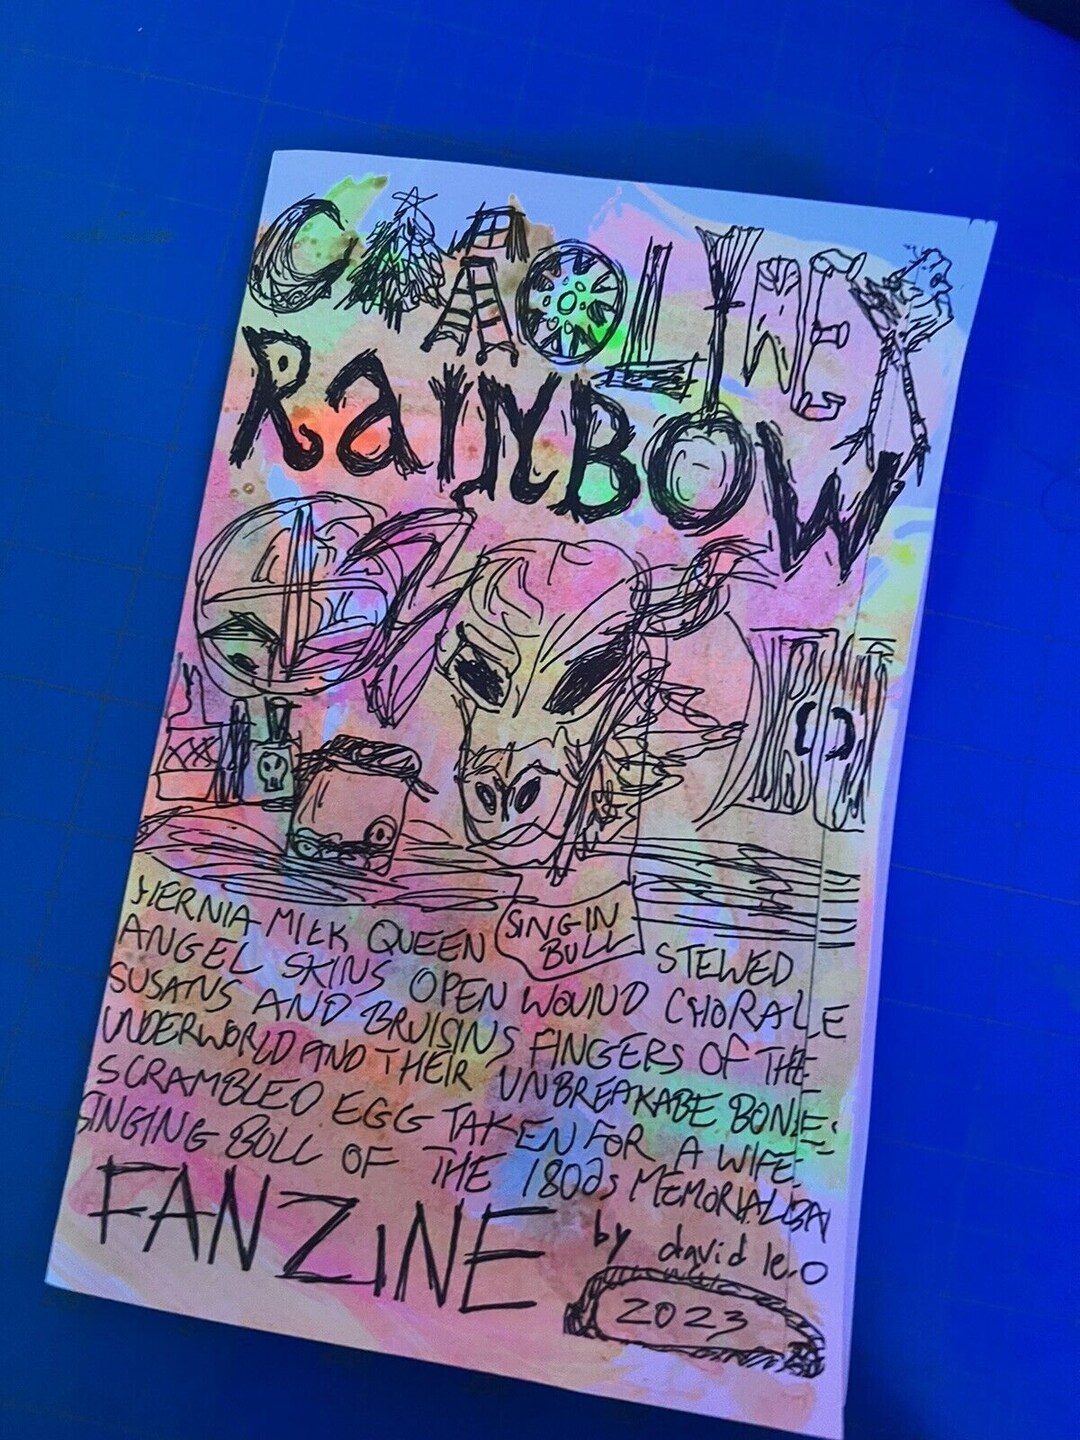 CAROLINER
RaINBOW
HERNIA MILK QUEEN SINGIN BULL STEWED
ANGEL SKINS OPEN WOUND CHORALE
SUSANS AND BRUISINS FINGERS OF THE
UNDERWORLD AND THEIR UNBREAKABE BONE
SCRAMBLED EGG TAKEN FOR A WIFE
SINGING BULL OF THE 1800s MEMORIAL BA
FANZINE
by david leo
2023